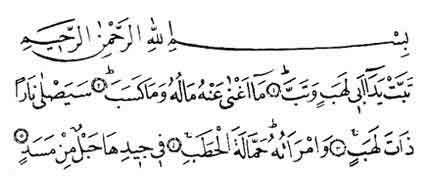 بِسْمِ اللهِ الرَّحْمٰنِ الرَّحِيمِ
تَبَّتْ يَدَآ اَبِي لَهَبٍ وَتَبَّۜ ۝١ مَٓا اَغْنٰى عَنْهُ مَالُهُ وَمَا كَسَبَۜ ۝٢ سَيَصْلٰى نَارًا
ذَاتَ لَهَبٍۚ ۝٣ وَامْرَاَتُهُۜ حَمَّالَةَ الْحَطَبِۚ ۝٤ فِي جِيدِهَا حَبْلٌ مِنْ مَسَدٍ ۝٥